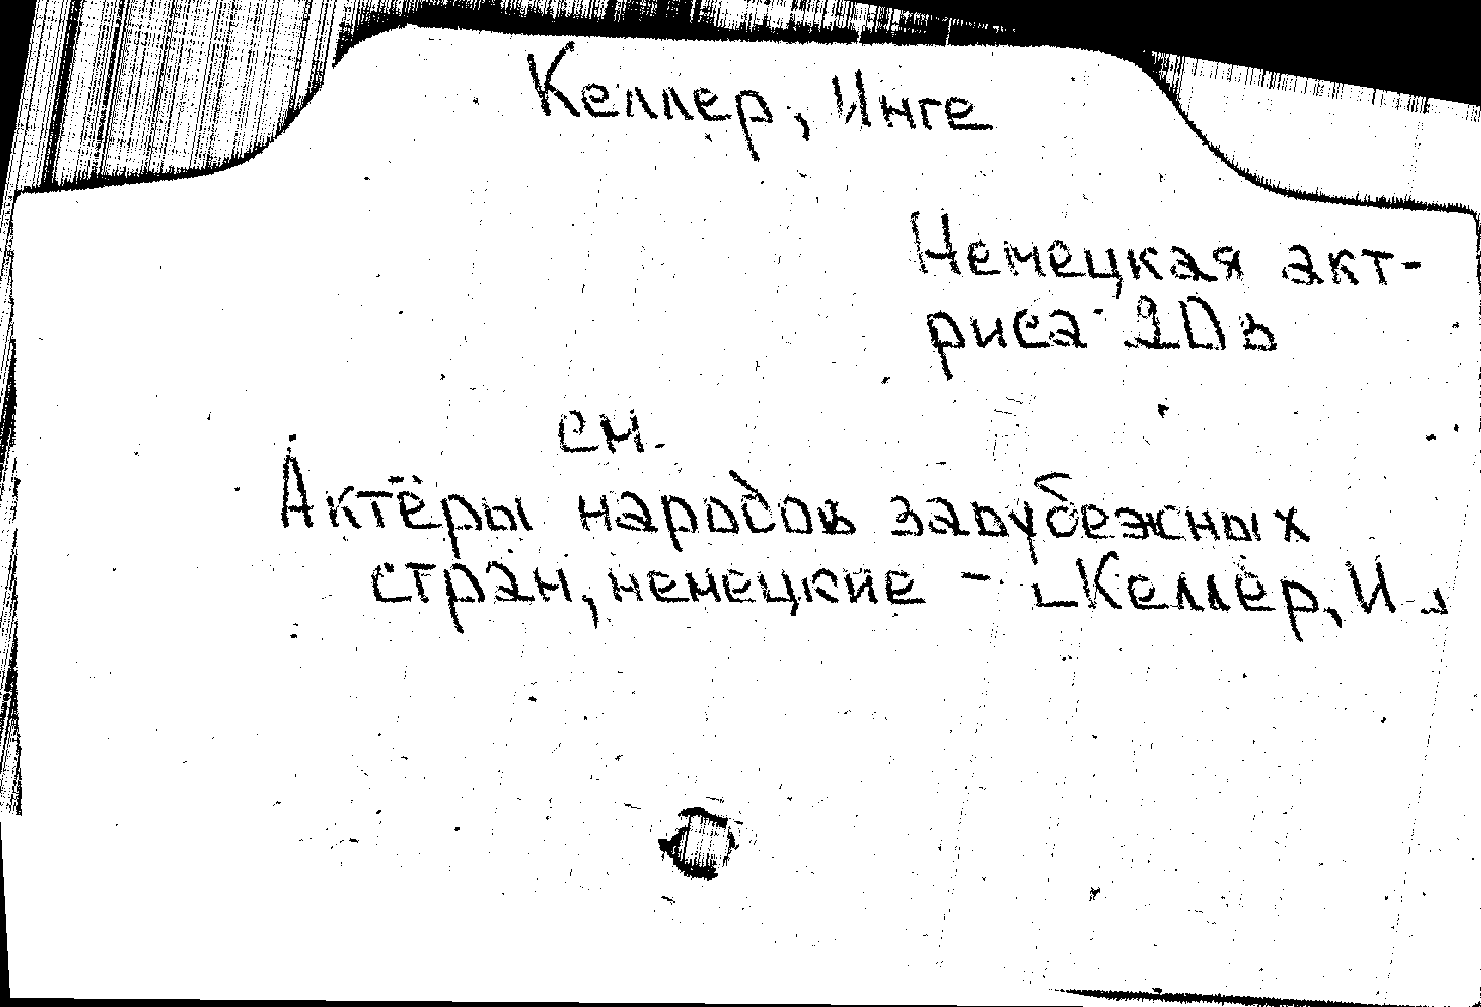 Келлер, Инге
Немецкая акт-
риса 20 в
см.
Актёры народов зарубежных
стран, немецкие - [Келлер, И.]